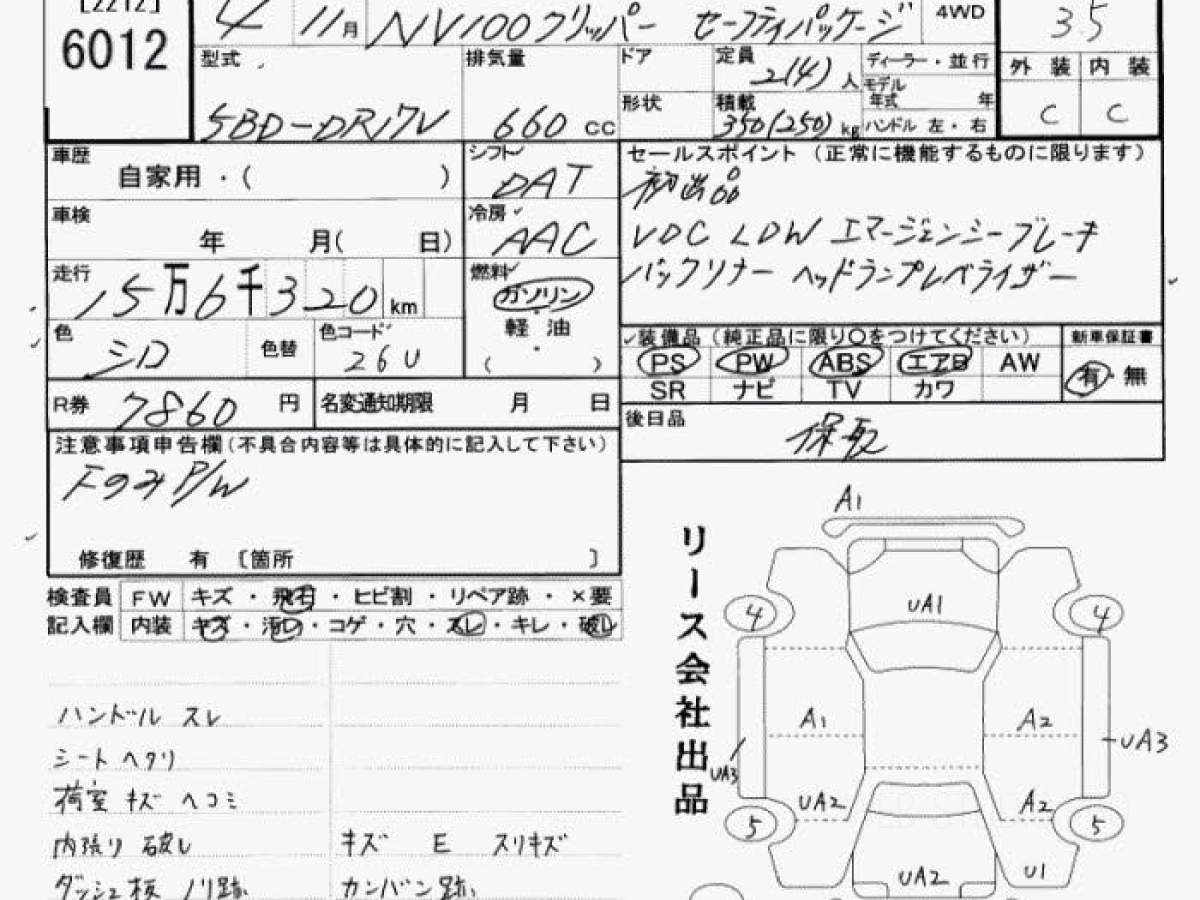 [2212]
6012
4 11月 NV100クリッパー セーフティパッケージ 4WD
3.5
型式 排気量 ドア 定員 ディーラー・並行
5BD-DR17V 660 cc 2(4)人 モデル年式 年
形状 積載 350(250)kg ハンドル 左・右
外装 内装
C C
車歴 自家用・( )
シフト DAT
車検 年 月( 日)
冷房 AAC
走行 15万6千320km
燃料 ガソリン
軽油
( )
色 シロ 色替 色コード 26U
R券 7860円 名変通知期限 月 日
セールスポイント (正常に機能するものに限ります)
初出品
VDC LDW エマージェンシーブレーキ
バックソナー ヘッドランプレベライザー
装備品 (純正品に限り○をつけてください) 新車保証書
PS PW ABS エアB AW 有・無
SR ナビ TV カワ
後日品
保取
注意事項申告欄(不具合内容等は具体的に記入して下さい)
FのみP/W
修復歴 有 〔箇所 〕
検査員 FW キズ・飛石・ヒビ割・リペア跡・×要
記入欄 内装 キズ・汚レ・コゲ・穴・スレ・キレ・破レ
ハンドル スレ
シート ヘタリ
荷室 キズ ヘコミ
内張り 破レ キズ E スリキズ
ダッシュ板 ノリ跡 カンバン跡
リース会社出品
A1
UA1
4 4
A1 A2
UA3 UA3
UA2 A2
5 5
UA2 U1